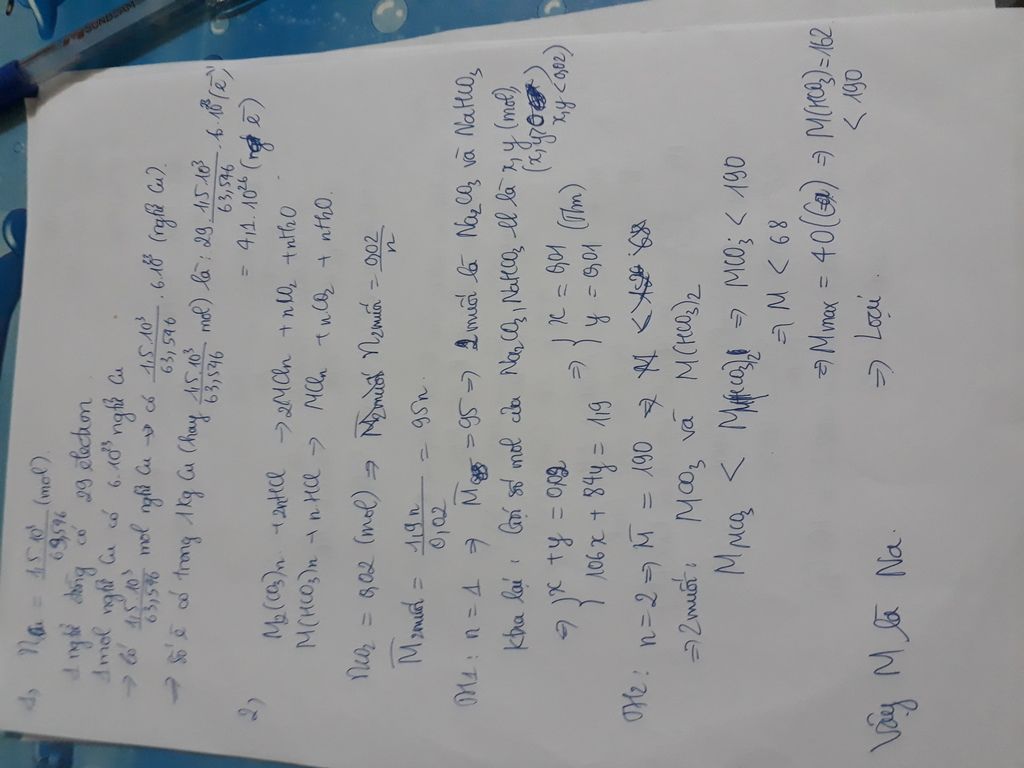 1, nCu = 1,5.10³/63,546 (mol).
1 ngtử đồng có 29 electron
1 mol ngtử Cu có 6.10²³ ngtử Cu
→ Có 1,5.10³/63,546 mol ngtử Cu → có 1,5.10³/63,546 . 6.10²³ (ngtử Cu).
→ Số e có trong 1kg Cu (hay 1,5.10³/63,546 mol) là : 29 . 1,5.10³/63,546 . 6.10²³ (e)
= 4,1.10²⁶ (e)
2,
M₂(CO₃)n + 2nHCl → 2MCln + nCO₂ + nH₂O
M(HCO₃)n + nHCl → MCln + nCO₂ + nH₂O.
nCO₂ = 0,02 (mol) ⇒ n2muối = 0,02/n
M̄2muối = 1,9n/0,02 = 95n.
TH1 : n = 1 ⇒ M̄ = 95 ⇒ 2 muối là Na₂CO₃ và NaHCO₃
Khai lại : Gọi số mol của Na₂CO₃, NaHCO₃ lll là x, y (mol,
x, y < 0,02)
⇒ { x + y = 0,02
106x + 84y = 1,19 ⇒ { x = 0,01
y = 0,01 (Tm)
TH2 : n = 2 ⇒ M̄ = 190
⇒ 2 muối : MCO₃ và M(HCO₃)₂
MMCO₃ < MM(HCO₃)₂ ⇒ MCO₃ < 190
⇒ M < 68
⇒ Mmax = 40 (Ca) ⇒ M(HCO₃) = 162
< 190
⇒ Loại.
Vậy M là Na.